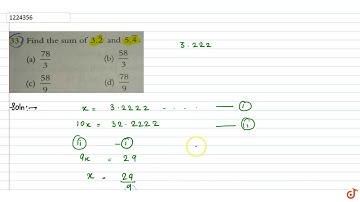 1224356
33. Find the sum of 3.2̅ and 5.4̅.
(a) 78/3 (b) 58/3
(c) 58/9 (d) 78/9
3.222
Soln:→ x = 3.2222 ..... —— (i)
10x = 32.2222 —— (ii)
(ii) - (i)
9x = 29
x = 29/9